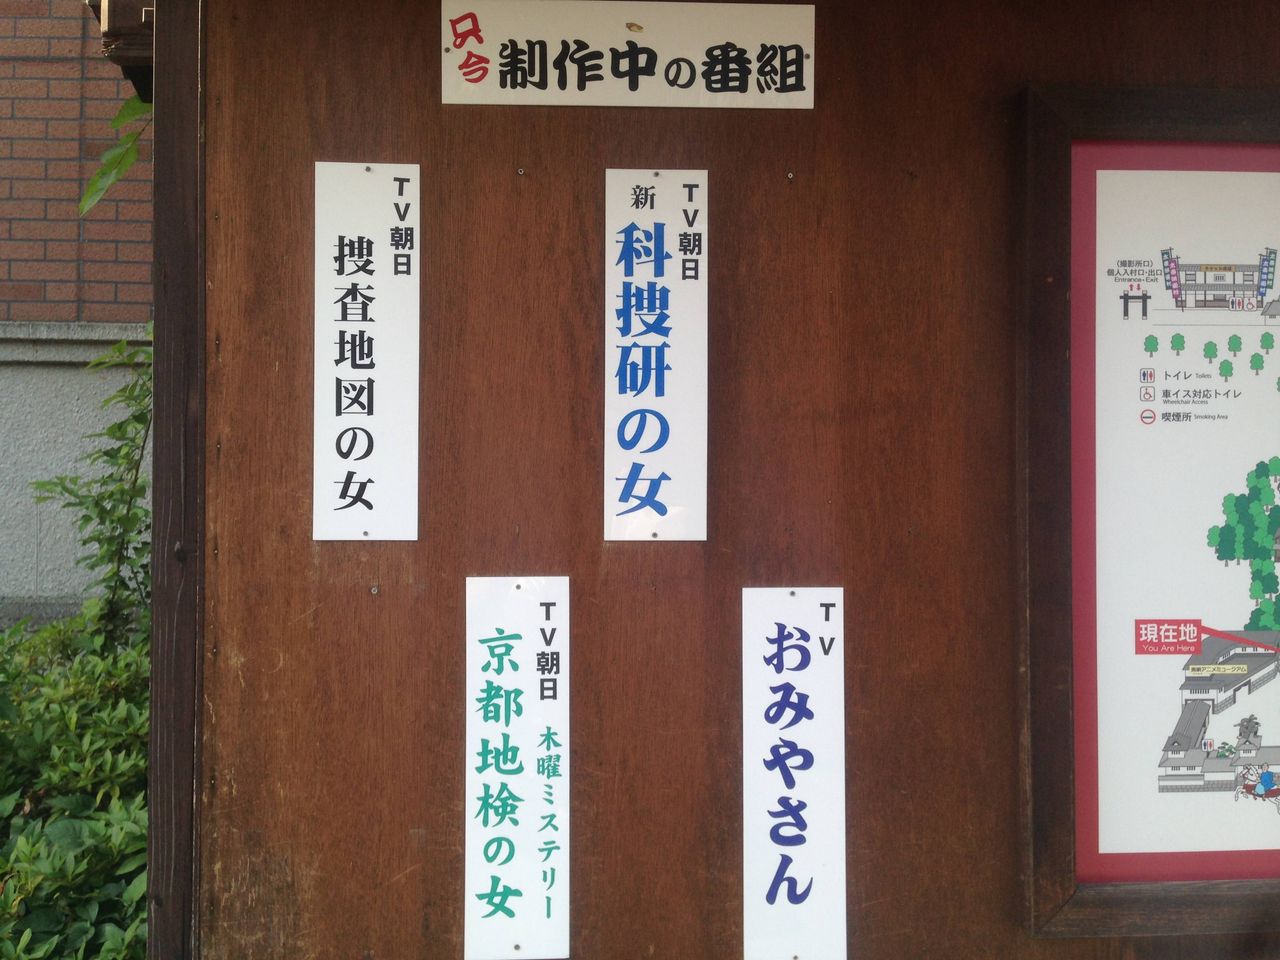 只今
制作中の番組
TV朝日
新
科捜研の女
TV朝日
捜査地図の女
TV
おみやさん
TV朝日
木曜ミステリー
京都地検の女
(撮影所口)
個人入村口・出口
Entrance・Exit
トイレ Toilets
車イス対応トイレ
Wheelchair Access
喫煙所 Smoking Area
現在地
You Are Here